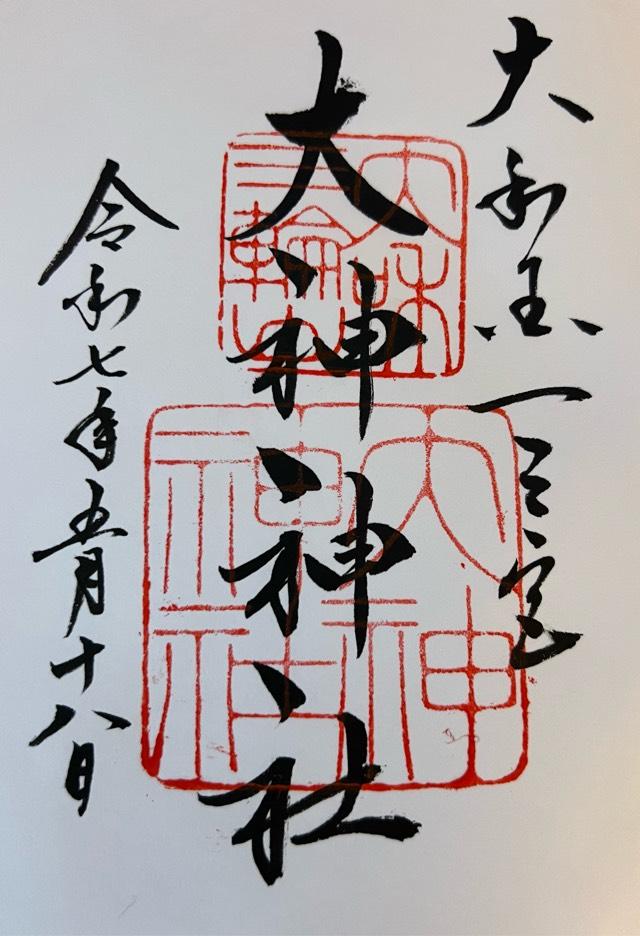 大和国一之宮
大神神社
令和七年五月十八日
大神
神社